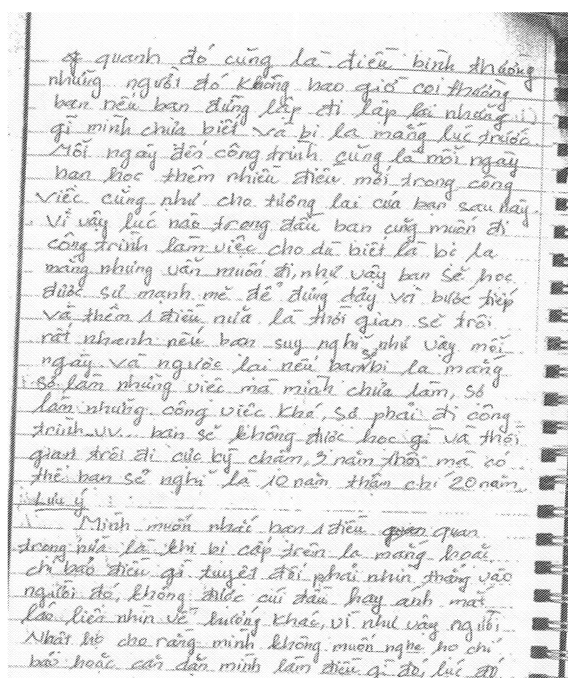 quanh đó cũng là điều bình thường
những người đó không bao giờ coi thường
bạn nếu bạn đừng lập đi lập lại những
gì mình chưa biết và bị la mắng lúc trước
Mỗi ngày đến công trình cũng là mỗi ngày
bạn học thêm nhiều điều mới trong công
việc cũng như cho tương lai của bạn sau này.
Vì vậy lúc nào trong đầu bạn cũng muốn đi
công trình làm việc cho dù biết là bị la
mắng nhưng vẫn muốn đi, như vậy bạn sẽ học
được sự mạnh mẽ để đứng dậy và bước tiếp
và thêm 1 điều nữa là thời gian sẽ trôi
rất nhanh nếu bạn suy nghĩ như vậy mỗi
ngày và ngược lại nếu bạn sợ bị la mắng
sợ làm những việc mà mình chưa làm, sợ
làm những công việc khó, sợ phải đi công
trình vv... bạn sẽ không được học gì và thời
gian trôi đi cực kỳ chậm, 3 năm thôi mà có
thể bạn sẽ nghĩ là 10 năm thậm chí 20 năm
Lưu ý
Mình muốn nhắc bạn 1 điều quan
trọng nữa là khi bị cấp trên la mắng hoặc
chỉ bảo điều gì tuyệt đối phải nhìn thẳng vào
người đó, không được cúi đầu hay ánh mắt
láo liên nhìn về hướng khác, vì như vậy người
Nhật họ cho rằng mình không muốn nghe họ chỉ
bảo hoặc căn dặn mình làm điều gì đó, lúc đó